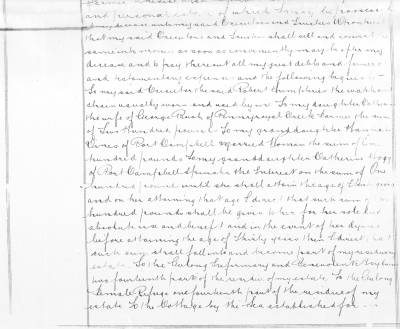 and personal estate of which I may be possessed
my decease unto my said Executors and Trustees Upon trust
that my said Executors and Trustees shall sell and convert the
same into money as soon as conveniently may be after my
decease and pay thereout all my just debts and funeral
and testamentary expenses and the following legacies
To my said Executor the said Robert Humphries the watch and
chain usually worn and used by me To my daughter Catherine
the wife of George Rush of Pennyroyal Creek Farmer the sum
of Two Hundred pounds To my granddaughter Hannah
of Port Campbell Married Woman the sum of One
hundred pounds To my granddaughter Catherine
of Port Campbell Spinster the Interest on the sum of One
hundred pounds until she shall attain the age of thirty years
and on her attaining that age I direct that such sum of One
hundred pounds shall be given to her for her sole but
absolute use and benefit and in the event of her dying
before attaining the age of thirty years then I direct that
such sum shall fall into and become part of my residuary
estate To the Geelong Infirmary and Benevolent Asylum
one fourteenth part of the residue of my estate To the Geelong
Female Refuge one fourteenth part of the residue of my
estate To the Cottage by the Sea established for